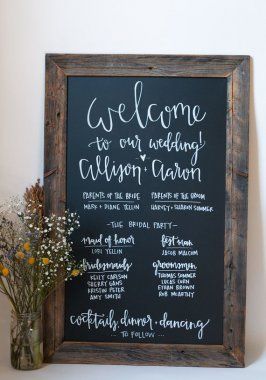 welcome
to our wedding!
Allison + Aaron
PARENTS OF THE BRIDE
MARK + DIANE YELLIN
PARENTS OF THE GROOM
HARVEY + SHARON SUMMER
-THE BRIDAL PARTY-
maid of honor
LORI YELLIN
best man
JACOB MALCOM
bridesmaids
KELLY CARSON
SHERRY GANS
KRISTIN PETER
AMY SMITH
groomsmen
THOMAS SUMMER
LUCAS CORN
ETHAN BROWN
ROB MCARTHY
cocktails, dinner + dancing
... TO FOLLOW ...